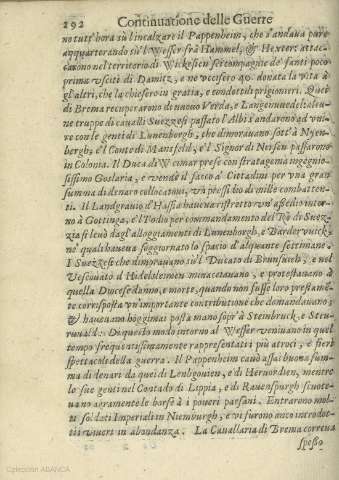 292 Continuatione delle Guerre
no tutt'hora sù l'incalzare il Pappenheim, che s'andaua pure
acquartorando sù'l Wesser frà Hammel, & Hexter: attac-
carono nel territorio di Wickesen sei compagnie de' fanti poco
prima vsciti di Damitz, e ne vccisero 40. donata la vita à
gl'altri, che la chiesero in gratia, e condottili prigionieri. Quei
di Brema recuperarono di nuouo Verda, e Langenwedel:
ne truppe di caualli Suezzesi passato l'Albi andarono ad vni-
re con le genti di Lunenborgh, che dimorauano sott'à Nyen-
bergh; e'l Conte di Mansfeld, e'l Signor di Nirsen passarono
in Colonia. Il Duca di Wcimar prese con stratagema ingegnio-
sissimo Goslaria, e vendè il sacco a' Cittadini per vna gran
summa di denaro collocatoui, vn presidio di mille combatten-
ti. Il Landgrauio d'Hassia haueua ristretto vn'assedio intor-
no à Gottinga, e'l Todio per commandamento del Rè di Suez-
zia si leuò dagl'alloggiamenti di Lunenborgh, e Barderwick,
ne' quali haueua soggiornato lo spatio d'alquante settimane.
I Suezzesi che dimorauano sù'l Ducato di Brunsuich, e nel
Vescouato d'Hideleseimen minacciauano, e protestauano à
quella Diocese danno, e morte, quando non fusse loro presame-
te corrisposta vn'importante contributione che domandauano;
W haueuano hoggimai posta mano sopr'à Steinbruck, e Steu-
ruuald. Da quello modo intorno al Wesser veniuano in quel
tempo frequentissimamente rappresentati i più atroci, e fieri
spettacoli della guerra. Il Pappenheim cauò assai buona sum-
ma di denari da quei di Lenbgouien, e di Heruorden, mentre
le sue genti nel Contado di Lippia, e di Rauenspurgh scuote-
uano agramente le borse à i poueri paesani. Entrarono mol-
ti soldati Imperiali in Niemburgh, e vi furono anco introdot-
ti viueri in abondanza. La Cauallaria di Brema correua
spesso
Colección ABANCA